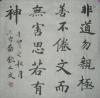 非道勿親極
善不倦文而
無害思若有
神